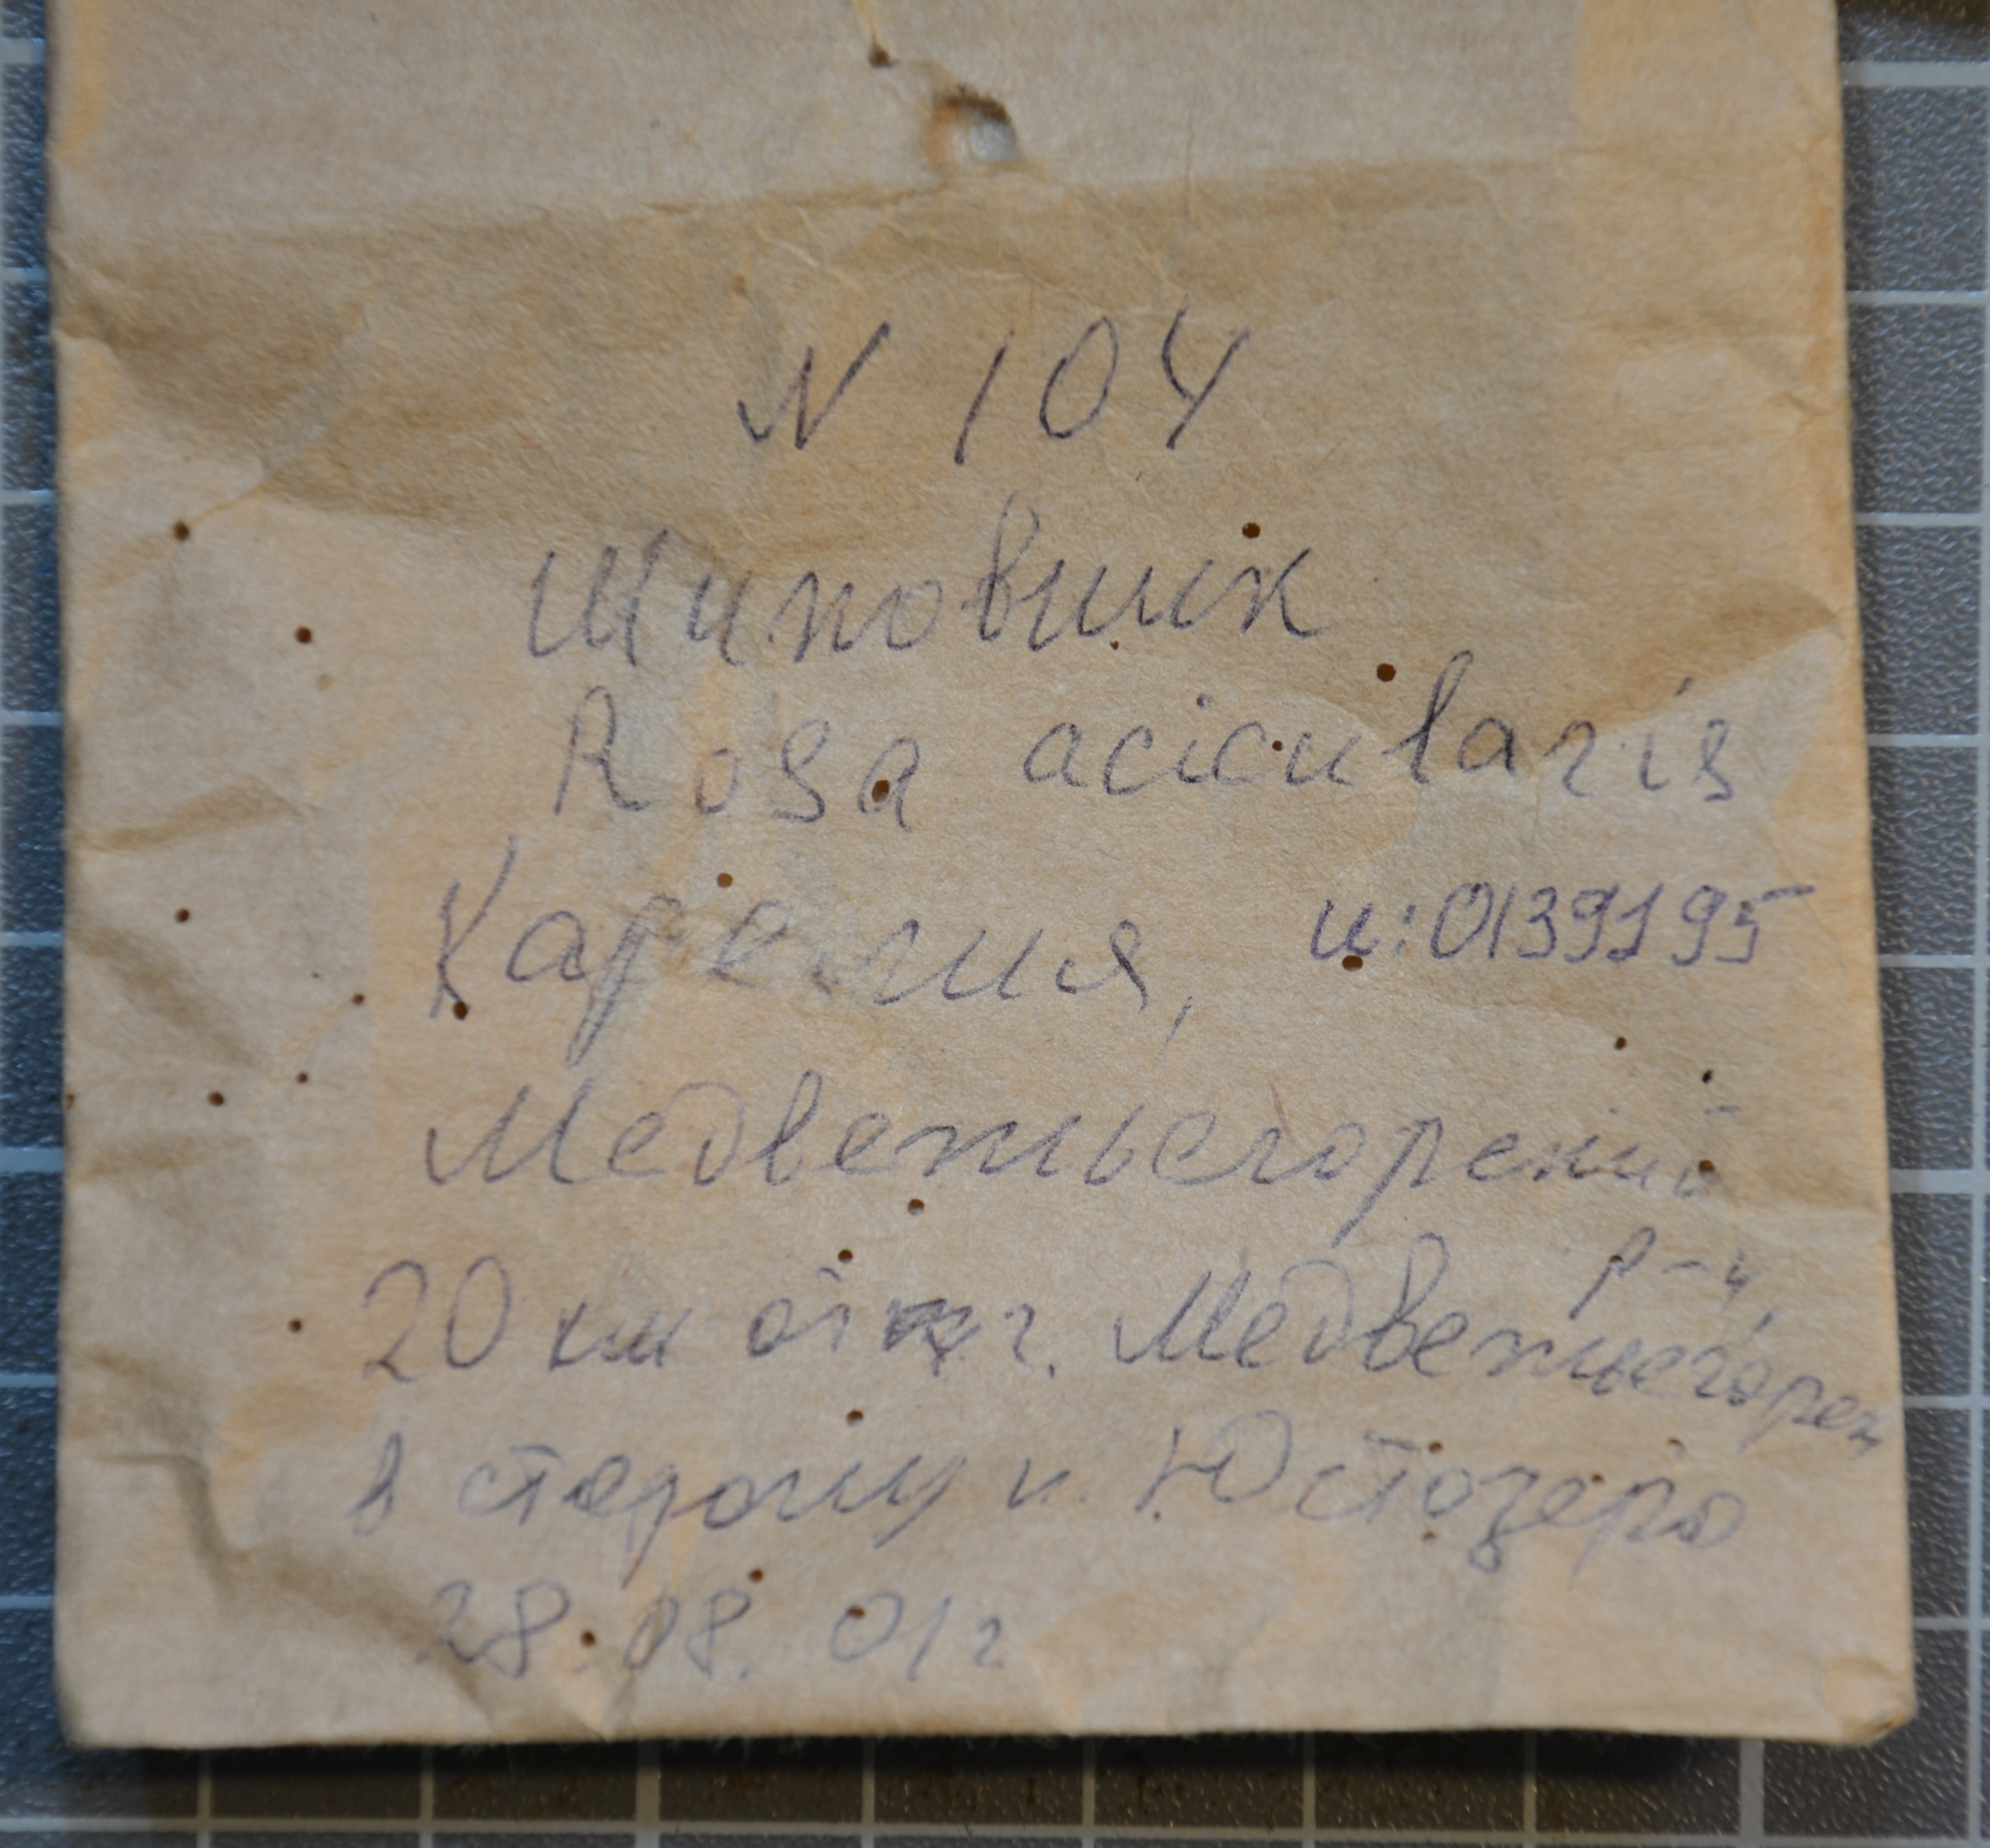 N 104
Шиповник
Rosa acicularis
Карелия, и:0139195
Медвежьегорский
р-н,
20 км от г. Медвежьегорск
в сторону п. Юстозеро
28.08.01г